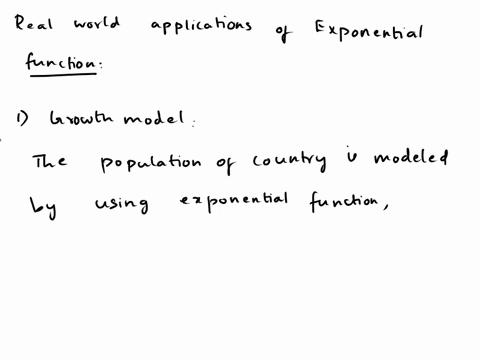 Real world applications of Exponential
function:
1) Growth model:
The population of country is modeled
by using exponential function,